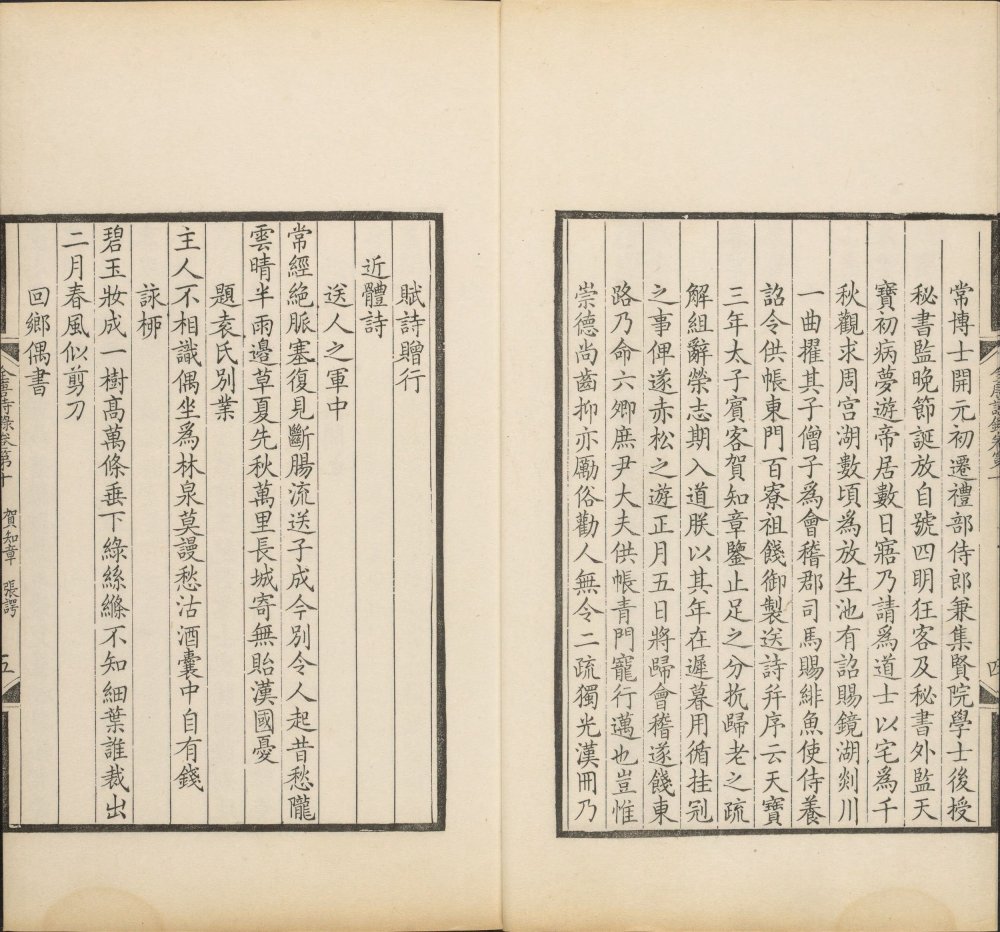 常博士開元初遷禮部侍郎兼集賢院學士後授
秘書監晚節誕放自號四明狂客及秘書外監天
寶初病夢遊帝居數日寤乃請為道士以宅為千
秋觀求周宮湖數頃為放生池有詔賜鏡湖剡川
一曲擢其子僧子為會稽郡司馬賜緋魚使侍養
詔令供帳東門百寮祖餞御製送詩幷序云天寶
三年太子賓客賀知章鑒止足之分抗歸老之疏
解組辭榮志期入道朕以其年在遲暮用循挂冠
之事俾遂赤松之遊正月五日將歸會稽遂餞東
路乃命六卿庶尹大夫供帳青門寵行邁也豈惟
崇德尚齒抑亦勵俗勸人無令二疏獨光漢冊乃
賦詩贈行
近體詩
送人之軍中
常經絶脈塞復見斷腸流送子成今別令人起昔愁隴
雲晴半雨邊草夏先秋萬里長城寄無貽漢國憂
題袁氏別業
主人不相識偶坐為林泉莫謾愁沽酒囊中自有錢
詠栁
碧玉妝成一樹高萬條垂下綠絲縧不知細葉誰裁出
二月春風似剪刀
回鄉偶書
賀知章 張諤
五